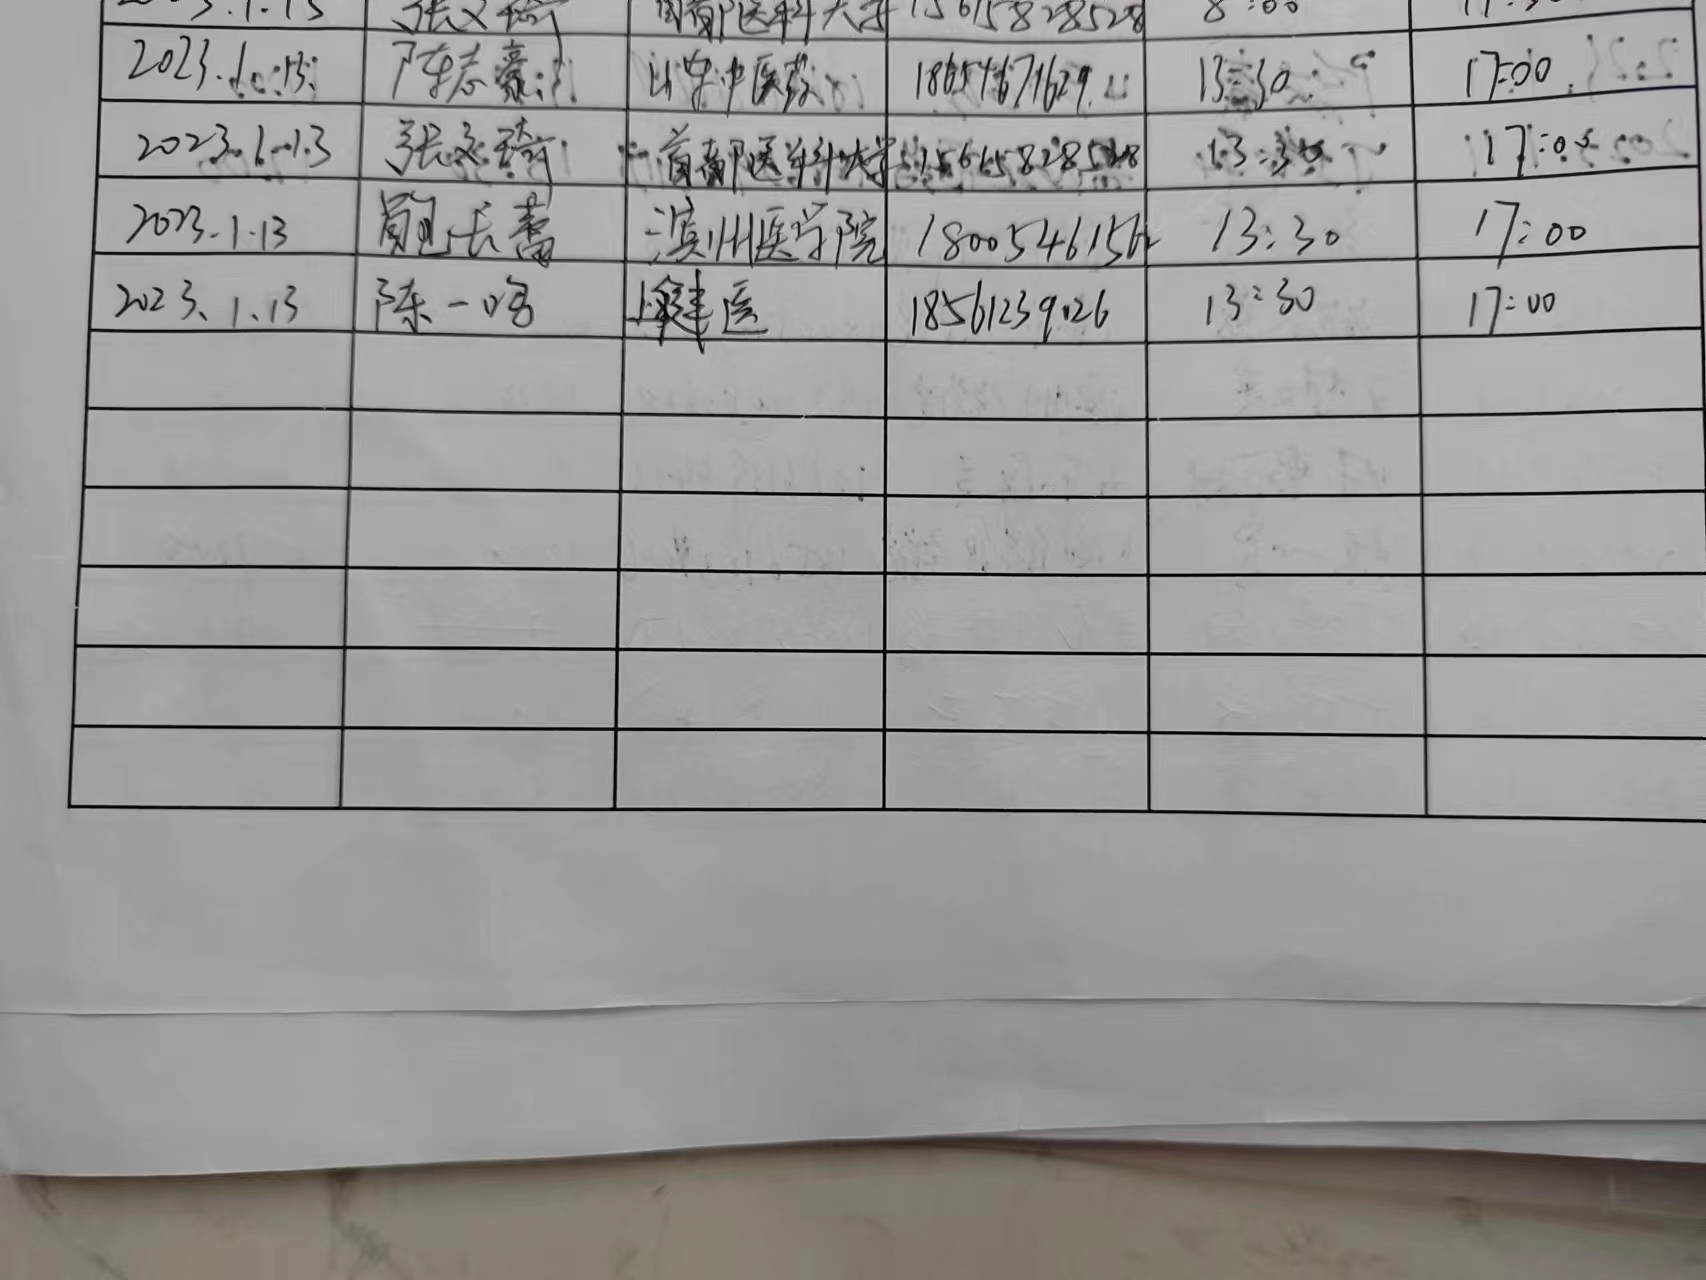 2023.1.13 张文琦 首都医科大学 15615828528 8:00
2023.1.13 陈志豪 山东中医药 18654671629 13:30 17:00
2023.1.13 张文琦 首都医科大学 15615828528 13:30 17:00
2023.1.13 长 滨州医学院 1800546156 13:30 17:00
2023.1.13 陈一鸣 医 18561239026 13:30 17:00